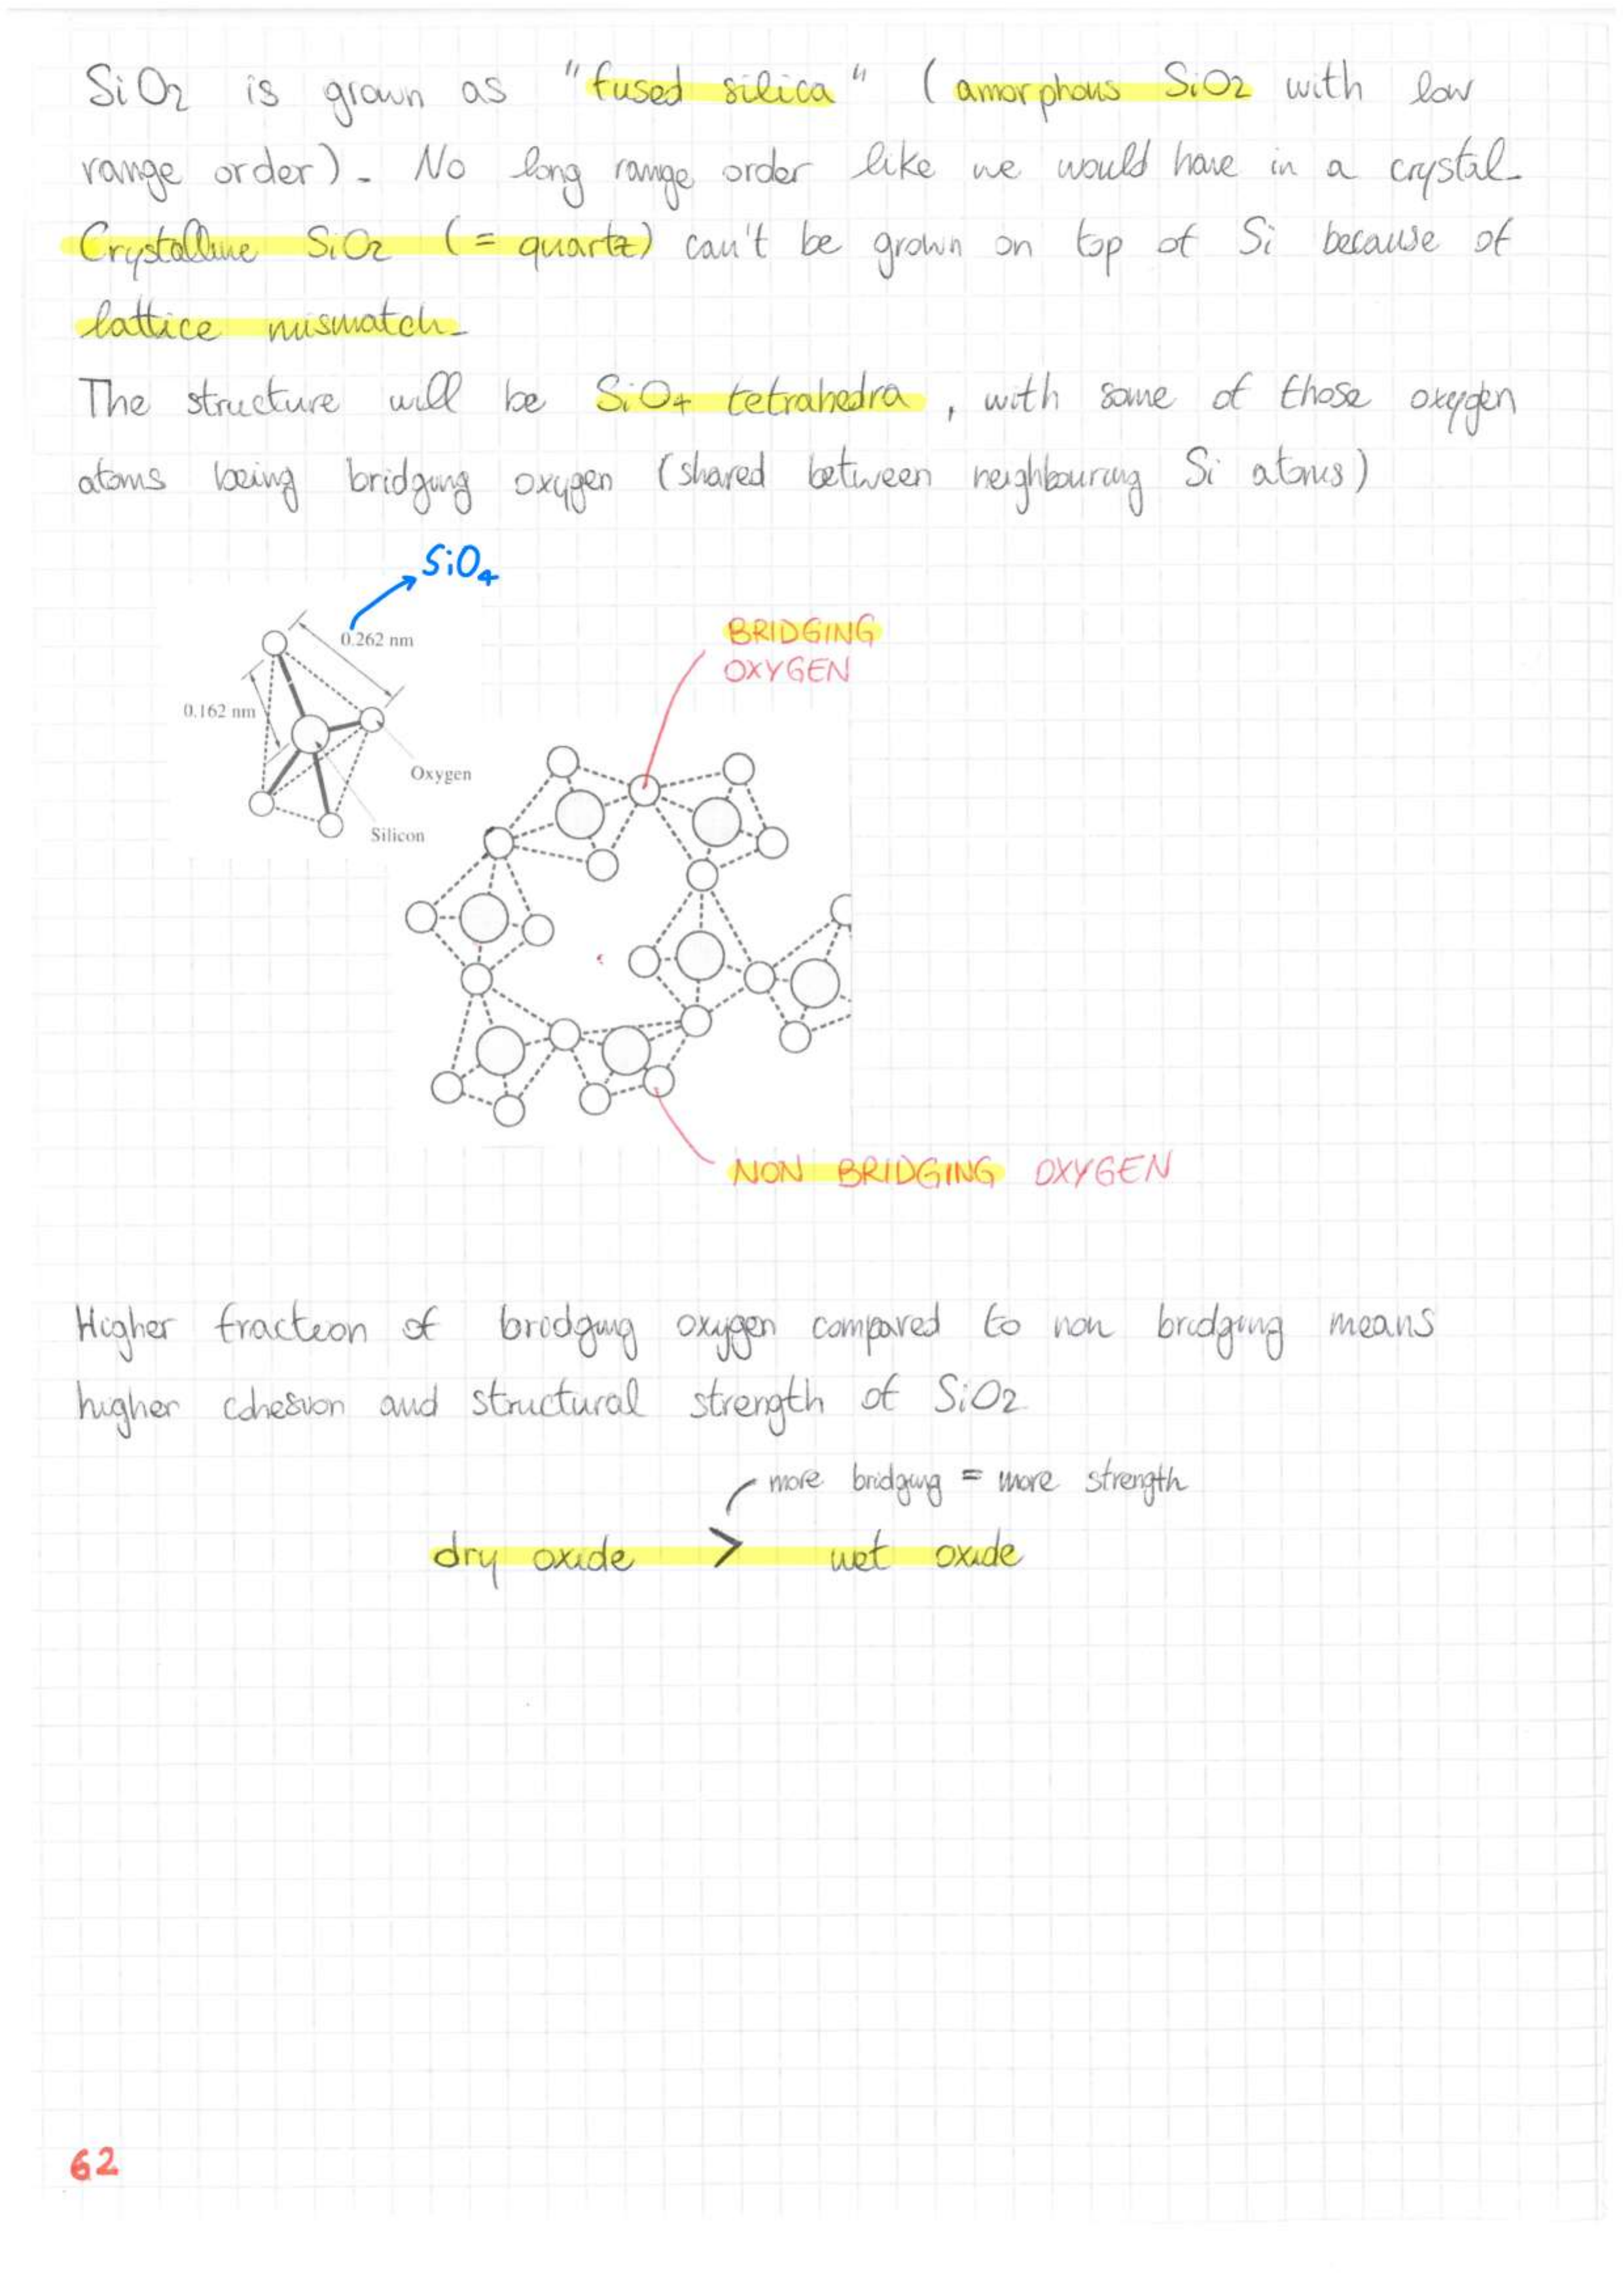 SiO2 is grown as "fused silica" (amorphous SiO2 with low
range order). No long range order like we would have in a crystal.
Crystalline SiO2 (= quartz) can't be grown on top of Si because of
lattice mismatch.
The structure will be SiO4 tetrahedra, with some of those oxygen
atoms being bridging oxygen (shared between neighbouring Si atoms)
SiO4
0.262 nm
0.162 nm
Oxygen
Silicon
BRIDGING
OXYGEN
NON BRIDGING OXYGEN
Higher fraction of bridging oxygen compared to non bridging means
higher cohesion and structural strength of SiO2
more bridging = more strength
dry oxide > wet oxide
62